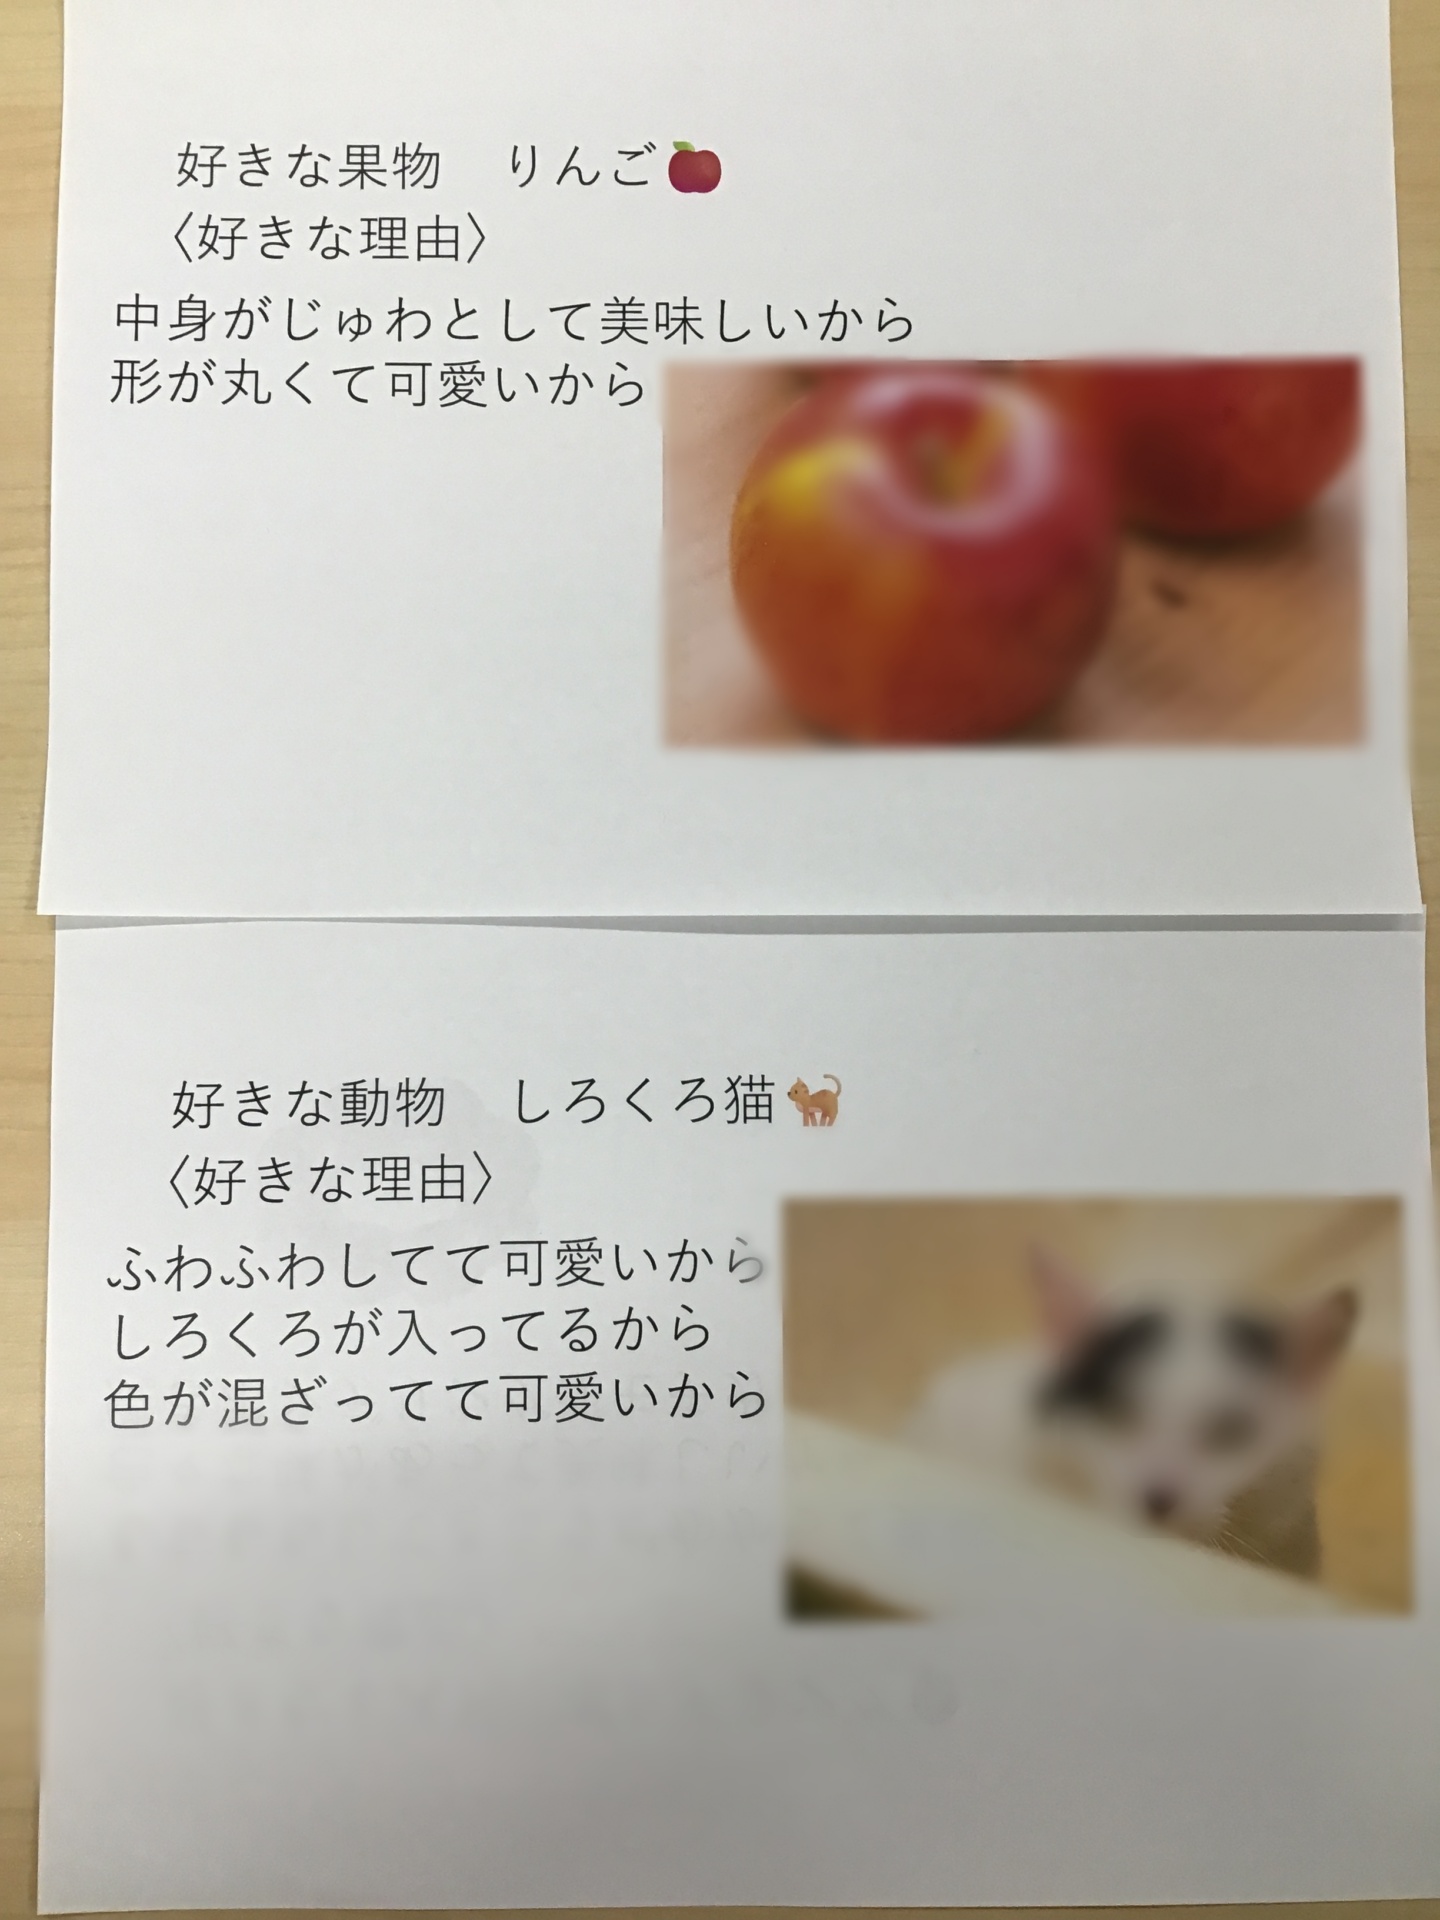 好きな果物　りんご🍎
〈好きな理由〉
中身がじゅわとして美味しいから
形が丸くて可愛いから
好きな動物　しろくろ猫🐈
〈好きな理由〉
ふわふわしてて可愛いから
しろくろが入ってるから
色が混ざってて可愛いから